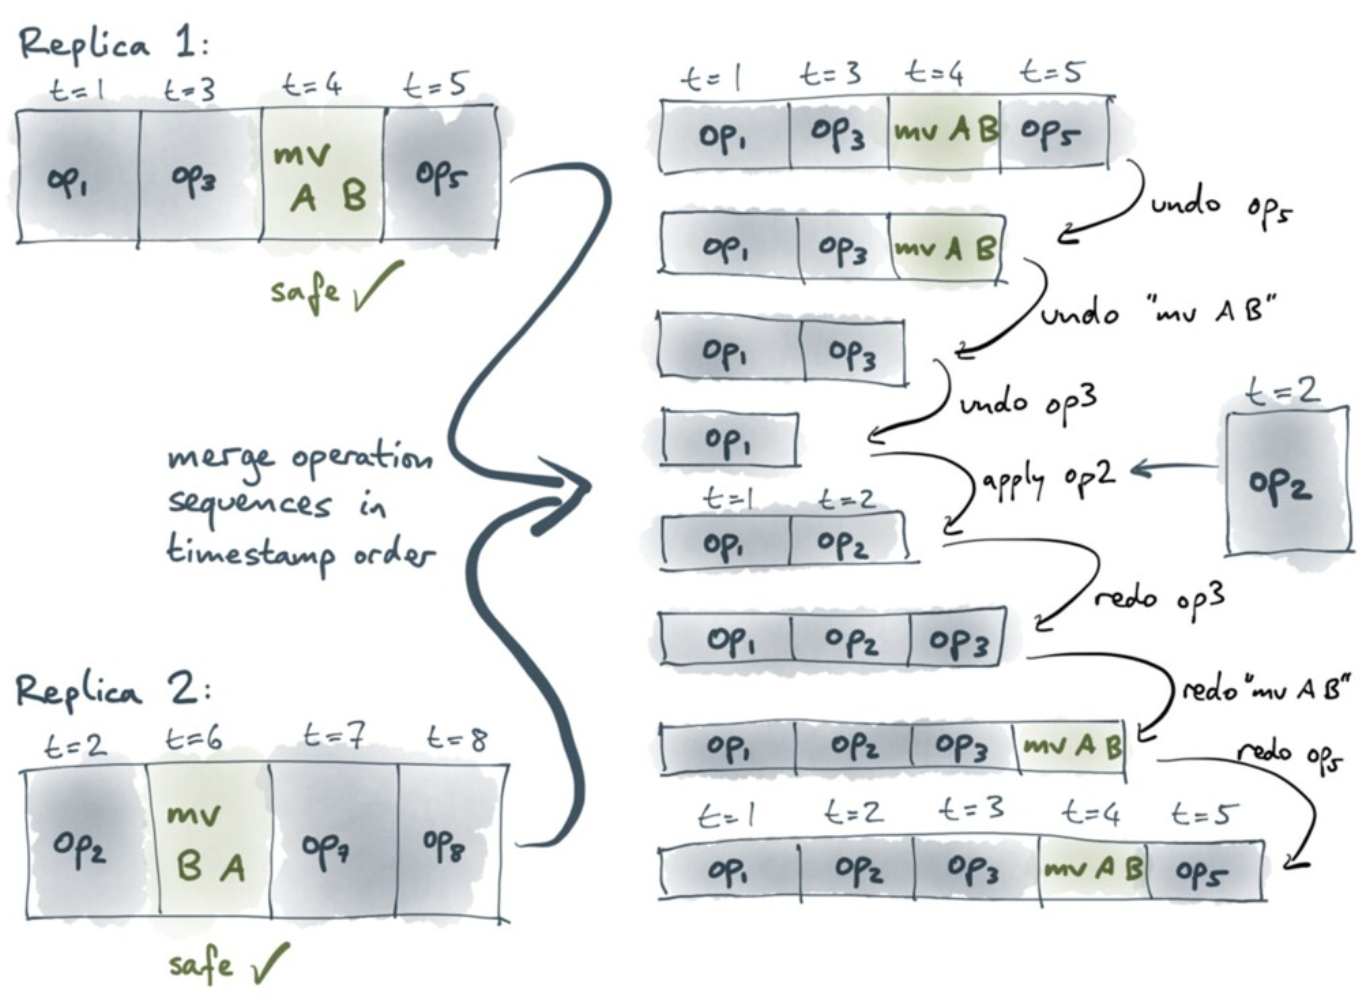 Replica 1:
t=1 t=3 t=4 t=5
op₁ op₃ mv A B op₅
safe ✓
merge operation
sequences in
timestamp order
Replica 2:
t=2 t=6 t=7 t=8
op₂ mv B A op₇ op₈
safe ✓
t=1 t=3 t=4 t=5
op₁ op₃ mv A B op₅
undo op₅
op₁ op₃ mv A B
undo "mv A B"
op₁ op₃
undo op3
op₁
apply op2
t=2
op₂
t=1 t=2
op₁ op₂
redo op3
op₁ op₂ op₃
redo "mv A B"
op₁ op₂ op₃ mv A B
redo op₅
t=1 t=2 t=3 t=4 t=5
op₁ op₂ op₃ mv A B op₅